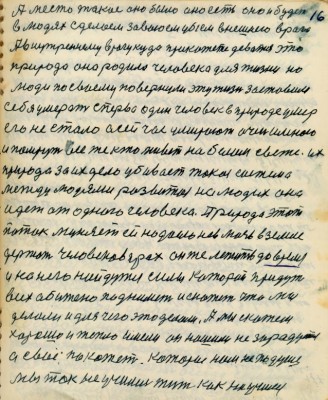 А место такое оно было оно есть оно и будет 16
в людях сделаем завоюем убьем внешнего врага
А внутреннему врагу куда прикажете деваться это
природа она родила человека для жизни но
люди по своему повернули эту жизнь заставили
себя умерать сперва один человек в природе умер
его не стало а сейчас умирают очень много
и помрут все те кто живет на белом свете. их
природа за их дело убивает такая система
между людями развитая на людях она
идет от одного человека. Природа этот
поток меняет ей надоело нев моч в земле
держать человеков прах он же лежит до время
и на него найдутся силы которые придут
всех обижено поднимет и скажет что мы
делали и для чего это делали. А мы скажем
хорошо и тепло имели он нашим не зарадуется
а своё покажет. Которое нам не подуше
мы так не учили жить как научил